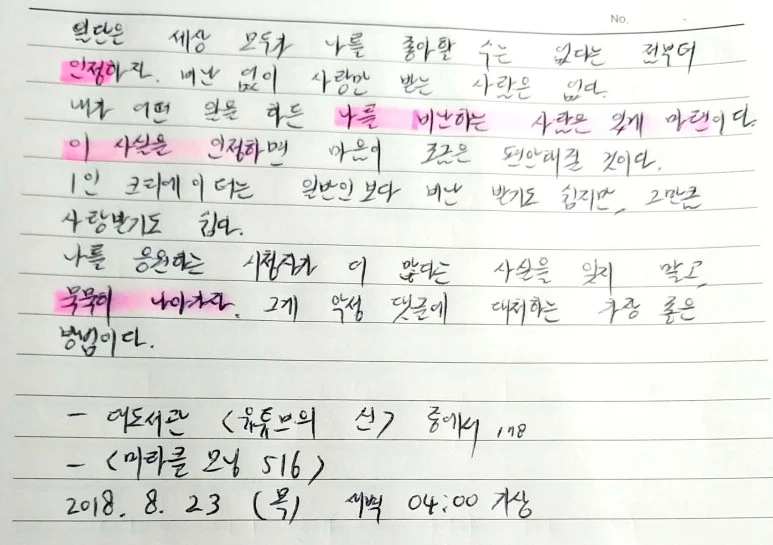 No.
일단은 세상 모두가 나를 좋아할 수는 없다는 전부터
인정하자. 비난 없이 사랑만 받는 사람은 없다.
내가 어떤 일을 하든 나를 비난하는 사람은 있게 마련이다.
이 사실을 인정하면 마음이 조금은 편안해질 것이다.
1인 크리에이터는 일반인보다 비난 받기도 쉽지만, 그만큼
사랑받기도 쉽다.
나를 응원하는 시청자가 더 많다는 사실을 잊지 말고,
묵묵히 나아가자. 그게 악성 댓글에 대처하는 가장 좋은
방법이다.
- 대도서관 <유튜브의 신> 중에서, 178
- <미라클 모닝 516>
2018. 8. 23 (목) 새벽 04:00 기상